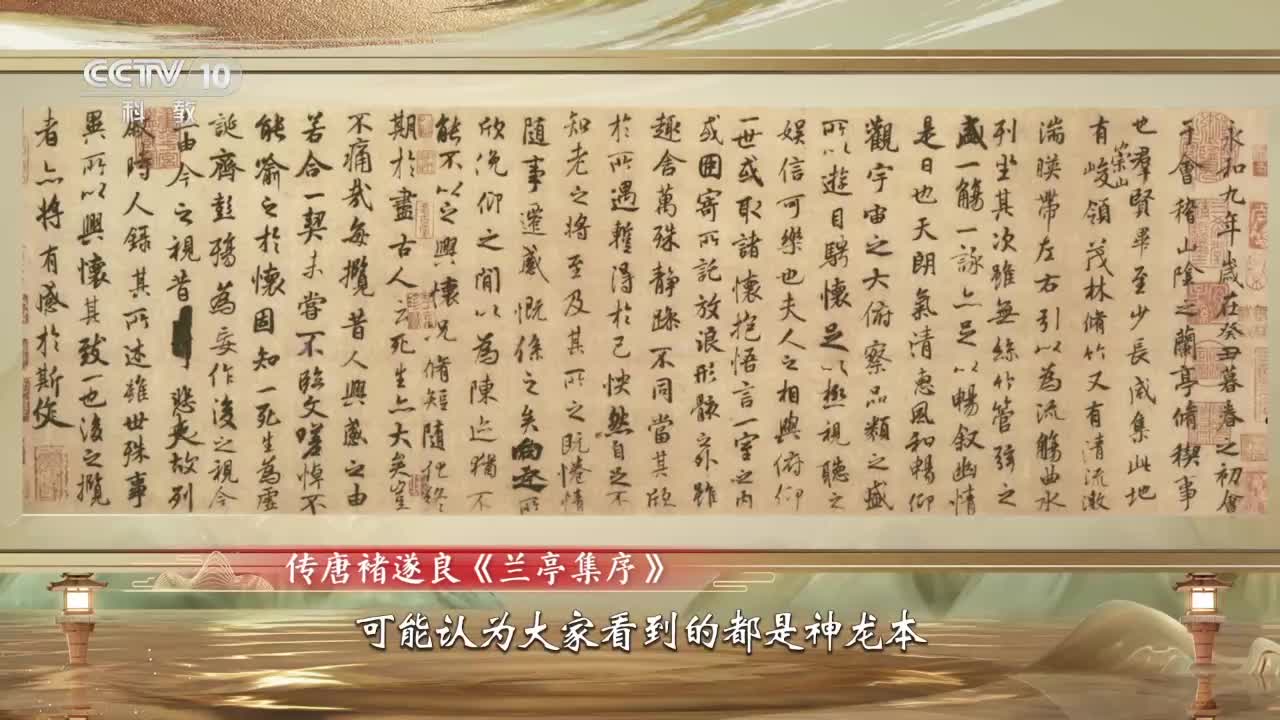 CCTV 10
科教
永和九年歲在癸丑暮春之初會
于會稽山陰之蘭亭脩稧事
也羣賢畢至少長咸集此地
有崇山峻領茂林脩竹又有清流激
湍暎帶左右引以為流觴曲水
列坐其次雖無絲竹管弦之
盛一觴一詠亦足以暢叙幽情
是日也天朗氣清惠風和暢仰
觀宇宙之大俯察品類之盛
所以遊目騁懷足以極視聽之
娛信可樂也夫人之相與俯仰
一世或取諸懷抱悟言一室之內
或因寄所託放浪形骸之外雖
趣舍萬殊静躁不同當其欣
於所遇暫得於己怏然自足不
知老之將至及其所之既惓情
隨事遷感慨係之矣向之所
欣俛仰之間以為陳迹猶不
能不以之興懷況脩短隨化終
期於盡古人云死生亦大矣豈
不痛哉每攬昔人興感之由
若合一契未嘗不臨文嗟悼不
能喻之於懷固知一死生為虛
誕齊彭殤為妄作後之視今
亦由今之視昔悲夫故列
敘時人錄其所述雖世殊事
異所以興懷其致一也後之攬
者亦將有感於斯文
传唐褚遂良《兰亭集序》
可能认为大家看到的都是神龙本